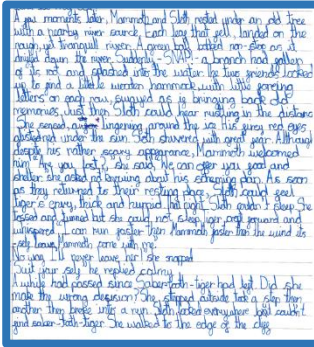 A few moments later, Mammoth and Sloth rested under an old tree
with a nearby river source. Each leaf that fell, landed on the
rough, yet tranquil river. A green ball bobbed non-stop as it
drifted down the river. Suddenly - SNAP! - a branch had fallen
of its root and splashed into the water. The two friends looked
up to find a little wooden hammock, with little
letters on each row, swayed as is bringing back old
memories. Just then Sloth could hear rusting in the distance
She sensed, lingering around the his red eyes
glistened under the sun. Sloth shivered with great fear. Although
despite his rather scary appearance, Mammoth welcomed
him. "Are you lost", she wait, we can offer you food and
shelter she asked no knowing about his scheming plan. As soon
as they returned to their resting place, Sloth could feel
tiger is thick and That night Sloth couldn't sleep. She
tossed and turned but she could not sleep, tiger crept forward and
whispered "I can run faster then Mammoth, faster than the wind its
self, leave Mammoth, come with me.
No way, I'll never leave her she snapped
Suit your self he replied calmly
A while had passed since Saber-tooth-tiger had left. Did she
make the wrong decision? She stepped outside take a step then
another then broke into a run. Sloth looked everywhere but couldn't
find saber-tooth-tiger. She walked to the edge of the